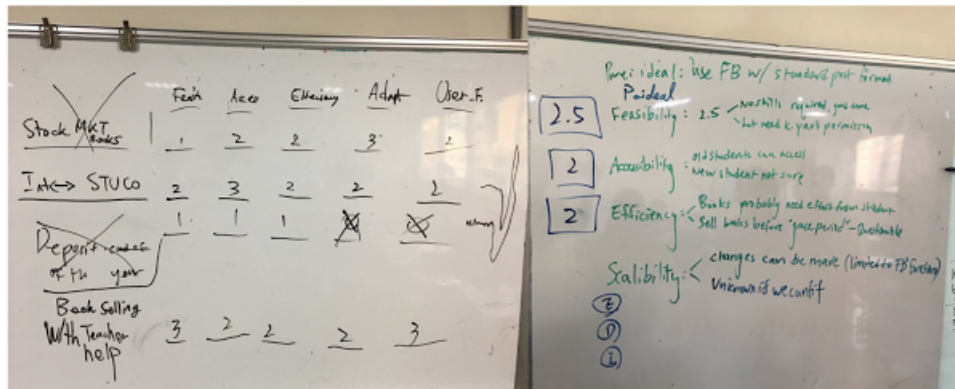 Feasib Acces Efficiency Adapt User-F.
Stock MKT
Books
1 2 2 3 2
Int<-> STUCO 2 3 2 2 2
1 1 1
Deposit
of th year
Book Selling
With Teacher
help
3 2 2 2 3
ideal: Use FB w/ standard post format
2.5
Feasibility: 2.5
No skills required
but need k. yao's permission
2
Accessibility:
old students can access
New student not sure
2
Efficiency:
Books probably need effort from student
Sell books before "gace period" - Questionable
Scalibility:
changes can be made (limited to FB
Unknown if we cant if
E
D